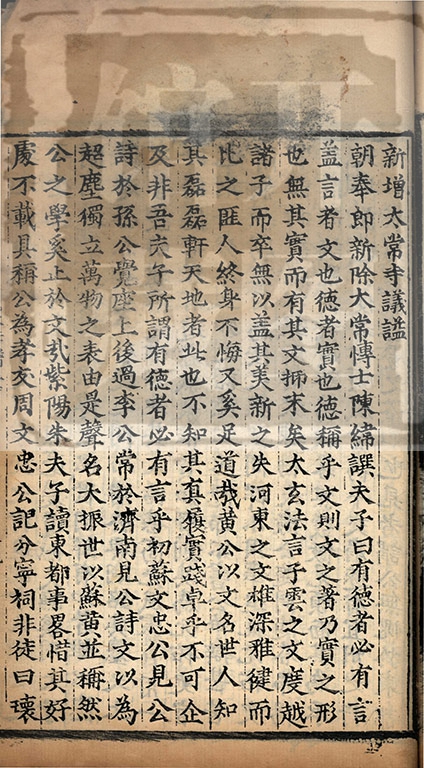 新增太常寺議謚
朝奉郎新除太常博士陳緯譔夫子曰有德者必有言
盖言者文也德者實也德稱乎文則文之著乃實之形
也無其實而有其文抑末矣太玄法言子雲之文度越
諸子而卒無以盖其美新之失河東之文雄深雅健而
比之匪人終身不悔又奚足道哉黄公以文名世人知
其磊磊軒天地者此也不知其真履實踐卓乎不可企
及非吾夫子所謂有德者必有言乎初蘇文忠公見公
詩於孫公覺座上後過李公常於濟南見公詩文以為
超塵獨立萬物之表由是聲名大振世以蘇黄並稱然
公之學奚止於文哉紫陽朱夫子讀東都事畧惜其好
處不載且稱公為孝友周文忠公記分寧祠非徒曰瓌